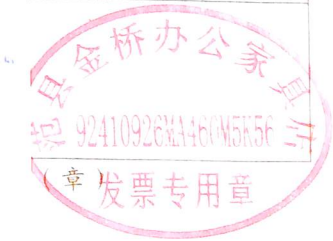 范县金桥办公家具厂
92410926MA460M5K56
(章)
发票专用章